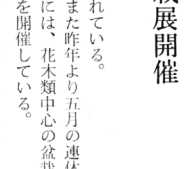 展開催
れている。
また昨年より五月の連休
には、花木類中心の盆栽
を開催している。